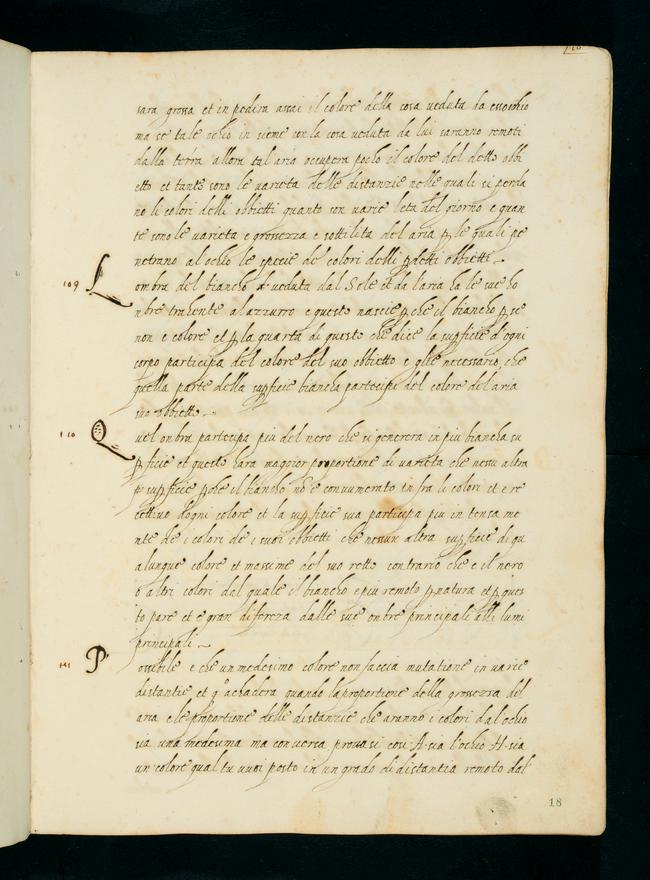 sara grossa et in pedira assai il colore della cosa veduta da esso ochio
ma se tale ochio in sieme con la cosa veduta da lui saranno remoti
dalla terra allora tal aria occupera pocho il colore del detto obbi
etto et tante sono le varieta delle distanzie nelle quali si perda
no li colori delli obbietti quanto son varie leta del giorno e quan
te sono le varieta e grossezza e sottilita del aria p le quali pe
netrano al ochio le spetie de colori delli pdetti obbietti
109 L ombra del biancho veduta dal Sole et da l'aria ha le sue ho
nbre trahente al azurro e questo nascie p che il biancho p se
non e colore et p la quarta di questo che dice la supficie d'ogni
corpo participa del colore del suo obbietto e glie necessario che
quella parte della supficie biancha partecipi del colore del aria
suo obbietto
110 Q uel onbra partecipa piu del nero che si generera in piu biancha su
pficie et questo hara maggior proportione di varieta che nessu altra
supficie p che il biancho no e connumerato in fra li colori et e re
cettivo d'ogni colore et la supficie sua participa piu in tensa me
nte de i colori de i suoi obbietti che nessun altra supficie di qu
alunque colore et massime del suo retto contrario che e il nero
o altri colori dal quale il biancho e piu remoto p natura et p ques
to pare et e gran difereza dalle sue onbre principali alli lumi
principali
111 P ossibile e che un medesimo colore non faccia mutatione in varie
distantie et qo achadera quando la proportione della grossezza del
aria e le proportione delle distanzie che aranno i colori dal ochio
sia una medesima ma conversa provasi cosi A sia l'ochio H sia
un colore qual tu vuoi posto in un grado di distantia remoto dal
18